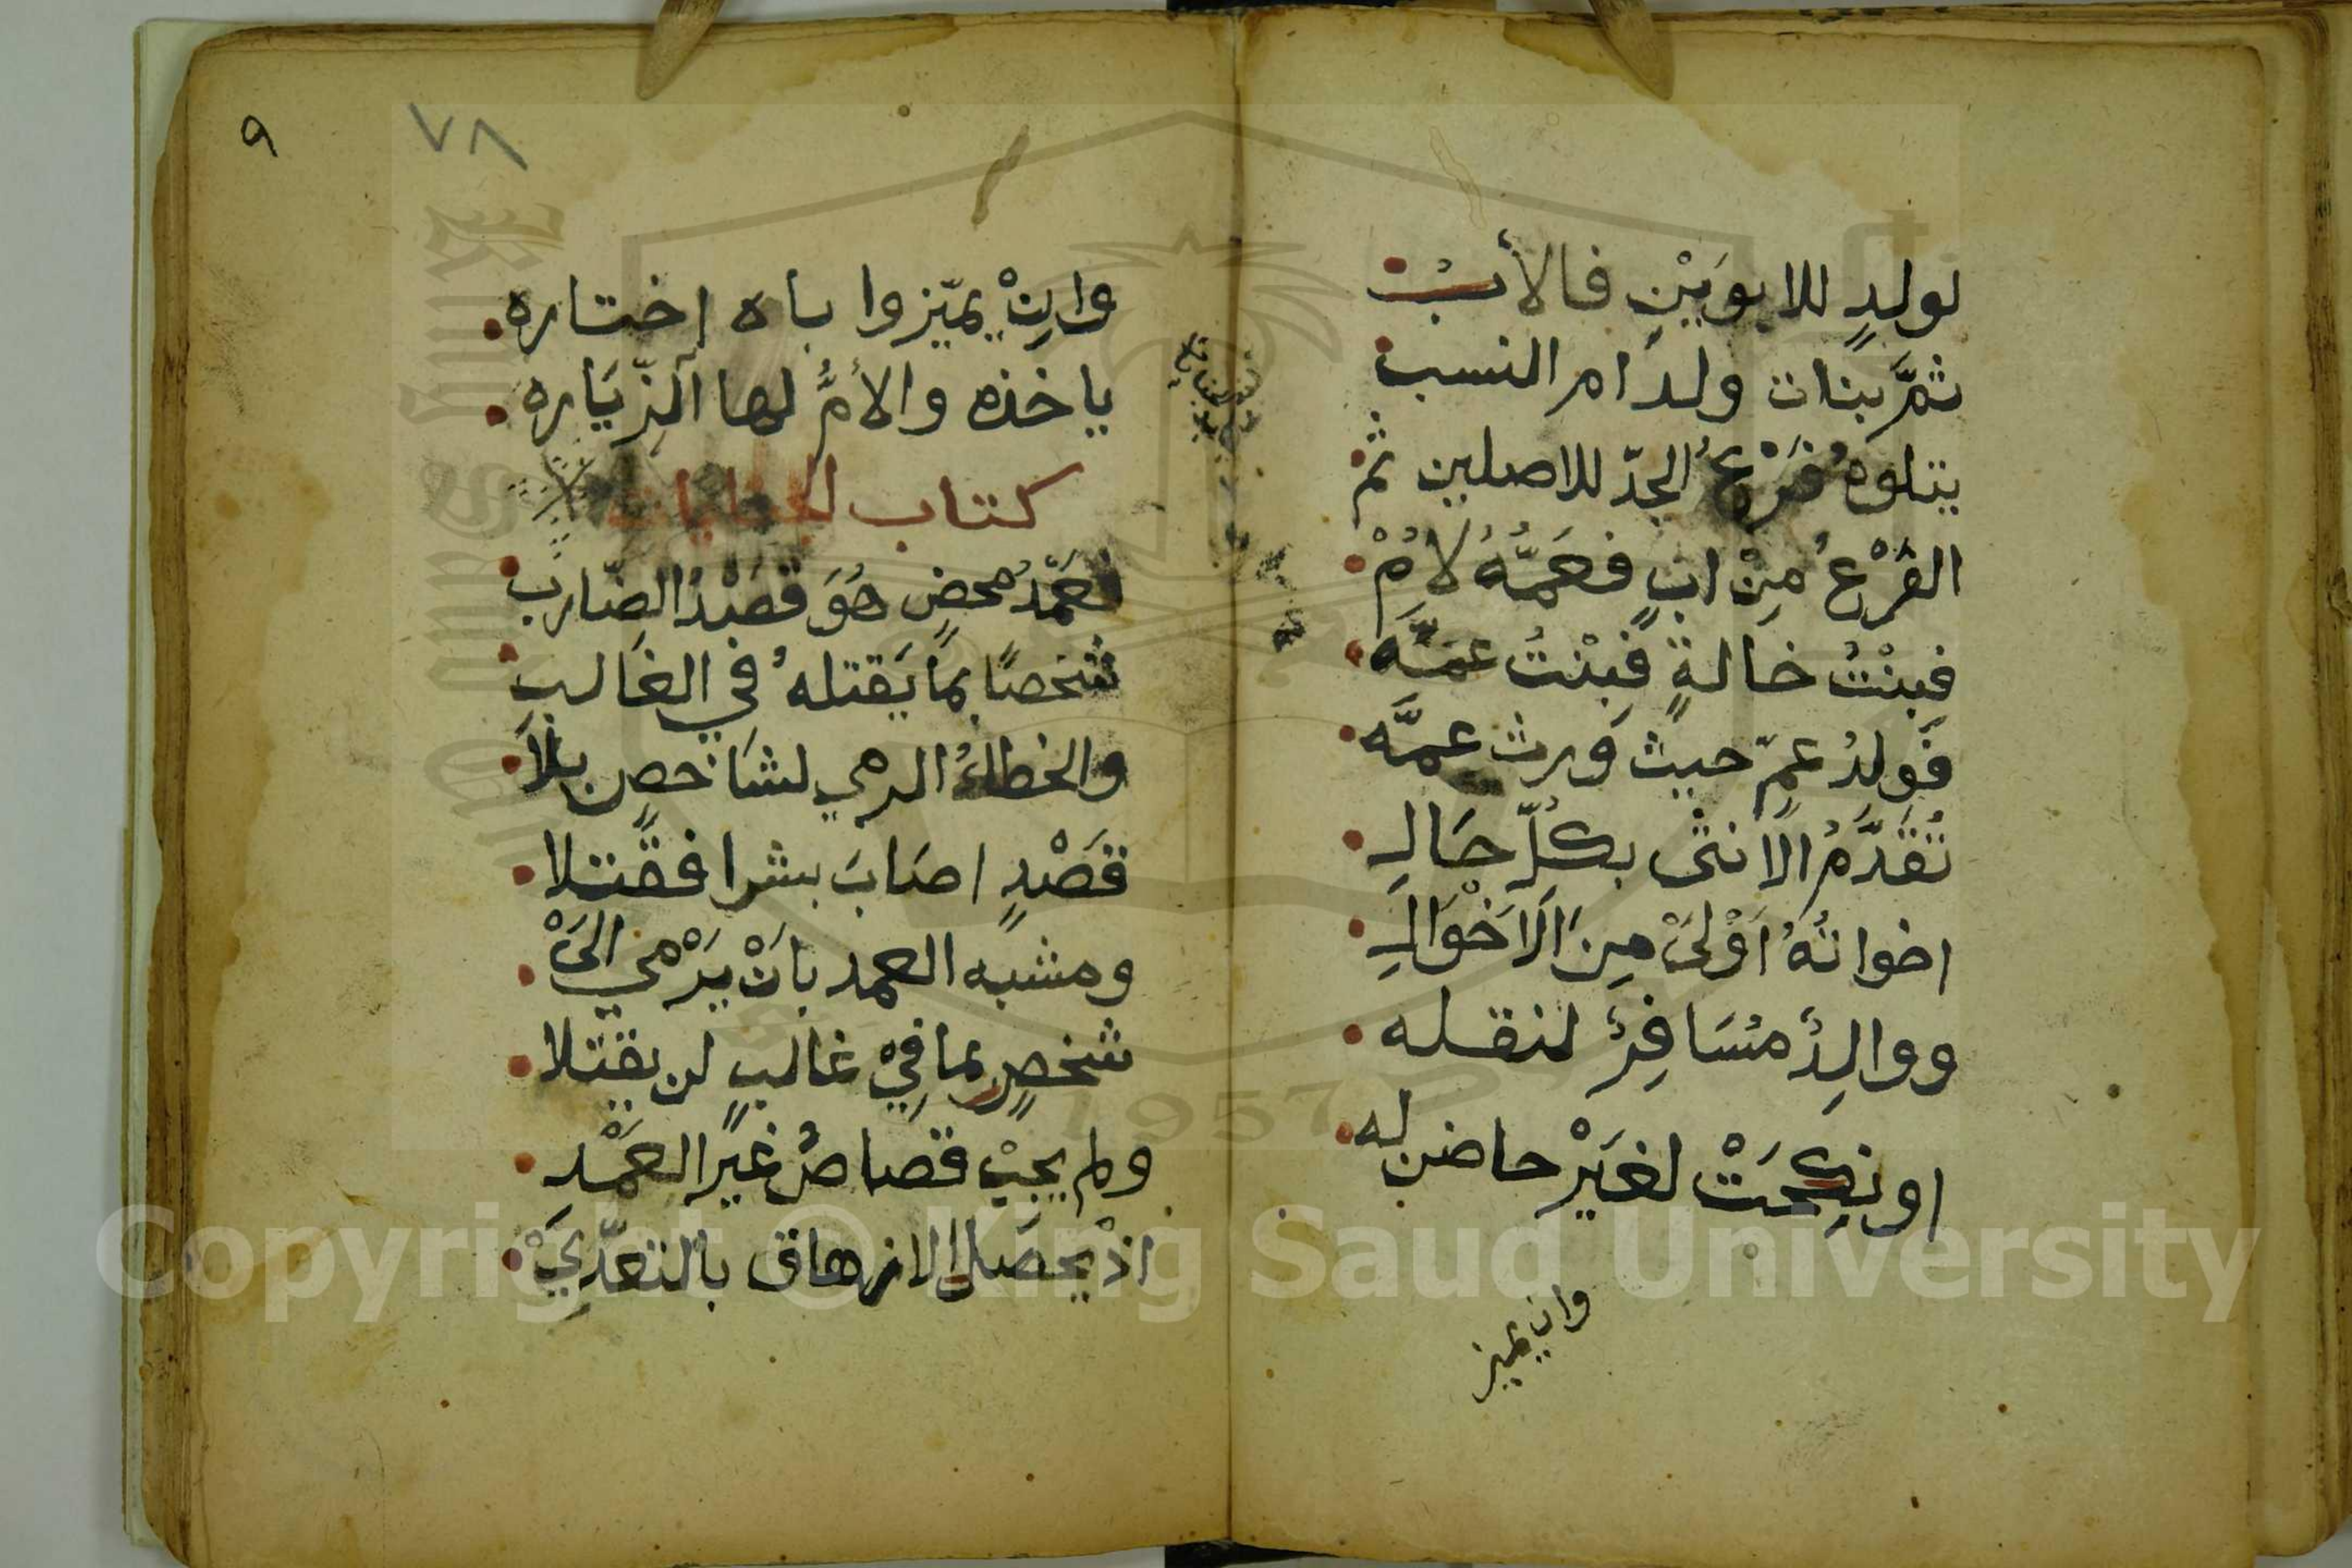 لولدٍ للابوَيْنِ فالأبْ
ثمَّ بنات ولدَام النسب
يتلوهُ فَرْعُ الجدّ للاصلين ثم
الفَرْعُ مِنْ ابٍ فعَمَّةُ لأُمْ
فبِنْتُ خالةٍ فبِنْتُ عمَّه
فَولدُ عمٍّ حيث وَرث عمَّه
تُقدَّمُ الانثى بكلّ حَالِ
اخواتُهُ اَوْلىْ مِنَ الاَخْوَالِ
ووالِدٌ مسَافِرٌ لنقله
او نكِحَتْ لغَيْرْ حاضن له
وان يميز
٩
٧٨
وانْ يميّز واباه اختاره
ياخذه والأمُّ لها الزِّيَاره
كتاب الجنايات
فعَمْدُ محضٍ هُوَ قصْدُ الضّارب
شخصًا بمَا يَقتلهُ في الغَالب
والخطاءُ الرمي لشاخصٍ بلاَ
قَصْدٍ اصَابَ بشرا فقتلا
ومشبه العمد بانْ يرْمي الىْ
شخصٍ بما فيْ غالبٍ لن يقتلا
ولم يجبْ قصاصُ غيرَ العمْدِ
اذْ يحصَل الازهاق بالتعدّيْ
Copyright © King Saud University
1957